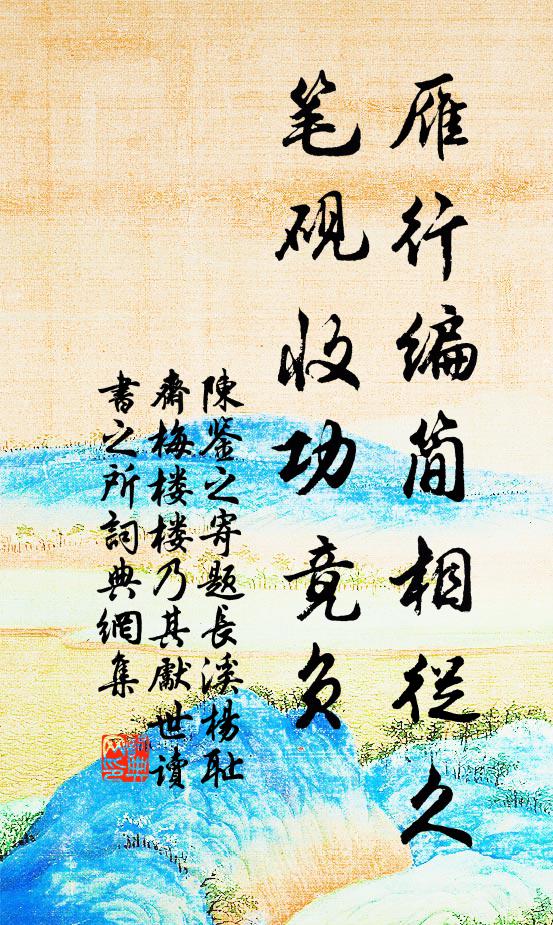 雁行编简相從久
笔砚收功竟负
陳鉴之寄题長溪楊耻
齋梅楼楼乃其獻世讀
書之所詞典網集